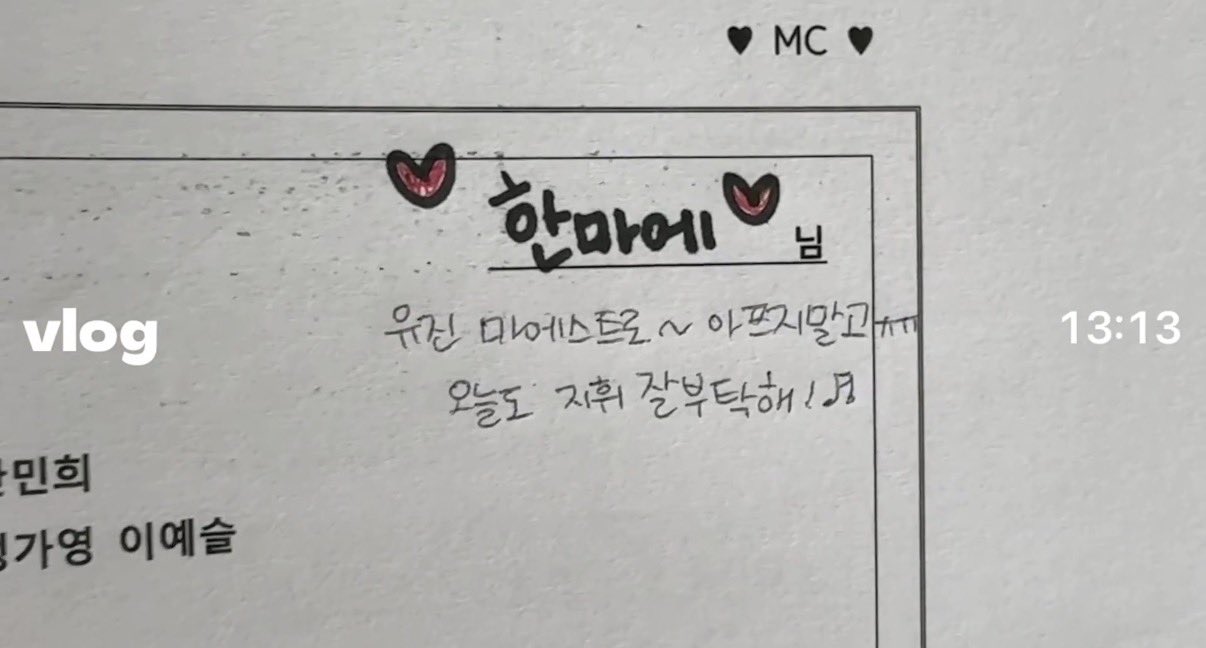 ♥ MC ♥
한마에 님
유진 마에스트로~ 아프지말고ㅠㅠ
vlog
13:13
오늘도 지휘 잘부탁해!♬
민희
가영 이예슬